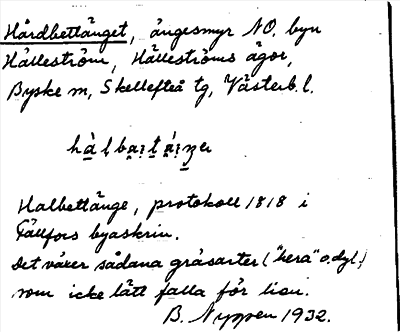 Hårdbettänget, ängesmyr NO. byn
Hälleström, Hälleströms ägor,
Byske sn, Skellefteå tg, Västerb. l.
Halbettänge, protokoll 1818 i
Fällfors byaskrin.
Det växer sådana gräsarter ("herå" o. dyl.)
som icke lätt falla för lien.
B. Nyppen 1932.